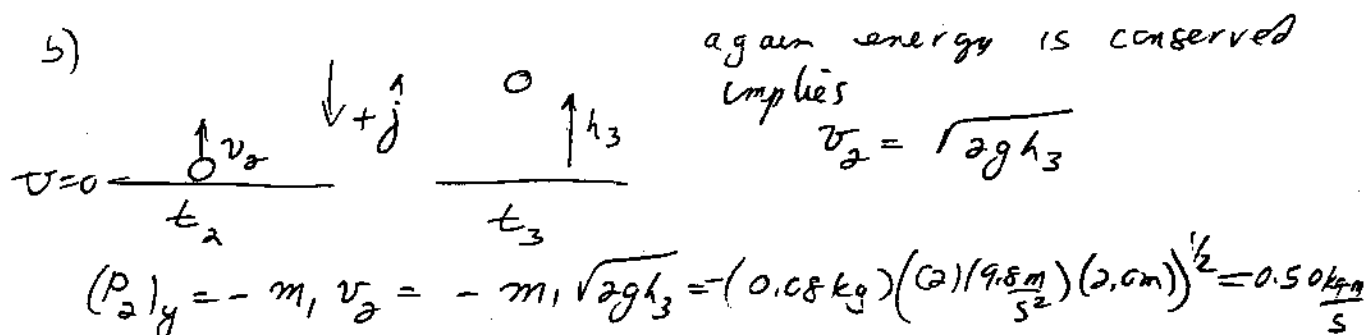 b)
again energy is conserved
implies
+ĵ
v₂
h₃
v₂ = √2gh₃
U=0
t₂
t₃
(P₂)_y = - m₁ v₂ = - m₁ √2gh₃ = -(0.08 kg)((2)(9.8 m/s²)(2.0m))^½ = 0.50 kg m/s